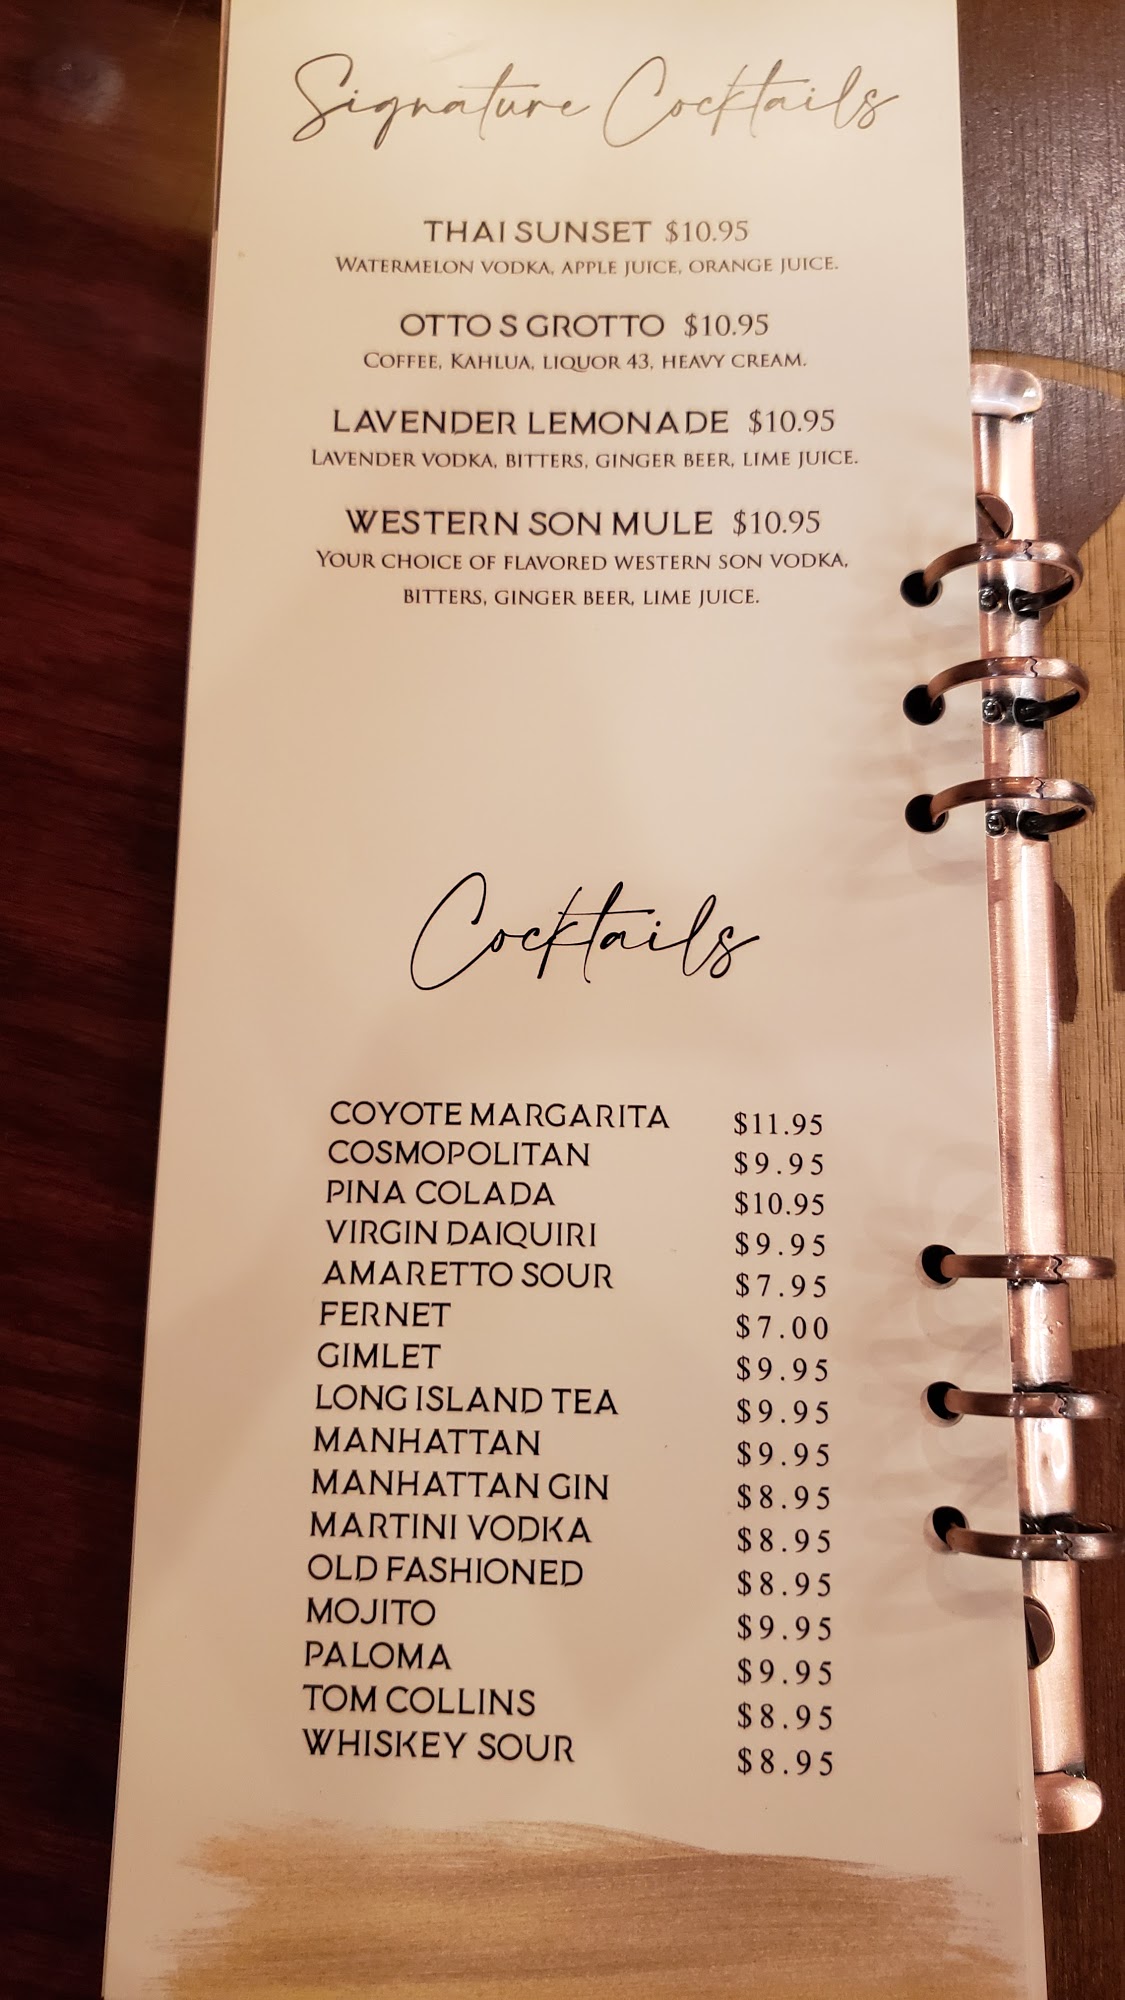 Signature Cocktails
THAI SUNSET $10.95
WATERMELON VODKA, APPLE JUICE, ORANGE JUICE.
OTTO S GROTTO $10.95
COFFEE, KAHLUA, LIQUOR 43, HEAVY CREAM.
LAVENDER LEMONADE $10.95
LAVENDER VODKA, BITTERS, GINGER BEER, LIME JUICE.
WESTERN SON MULE $10.95
YOUR CHOICE OF FLAVORED WESTERN SON VODKA,
BITTERS, GINGER BEER, LIME JUICE.
Cocktails
COYOTE MARGARITA $11.95
COSMOPOLITAN $9.95
PINA COLADA $10.95
VIRGIN DAIQUIRI $9.95
AMARETTO SOUR $7.95
FERNET $7.00
GIMLET $9.95
LONG ISLAND TEA $9.95
MANHATTAN $9.95
MANHATTAN GIN $8.95
MARTINI VODKA $8.95
OLD FASHIONED $8.95
MOJITO $9.95
PALOMA $9.95
TOM COLLINS $8.95
WHISKEY SOUR $8.95